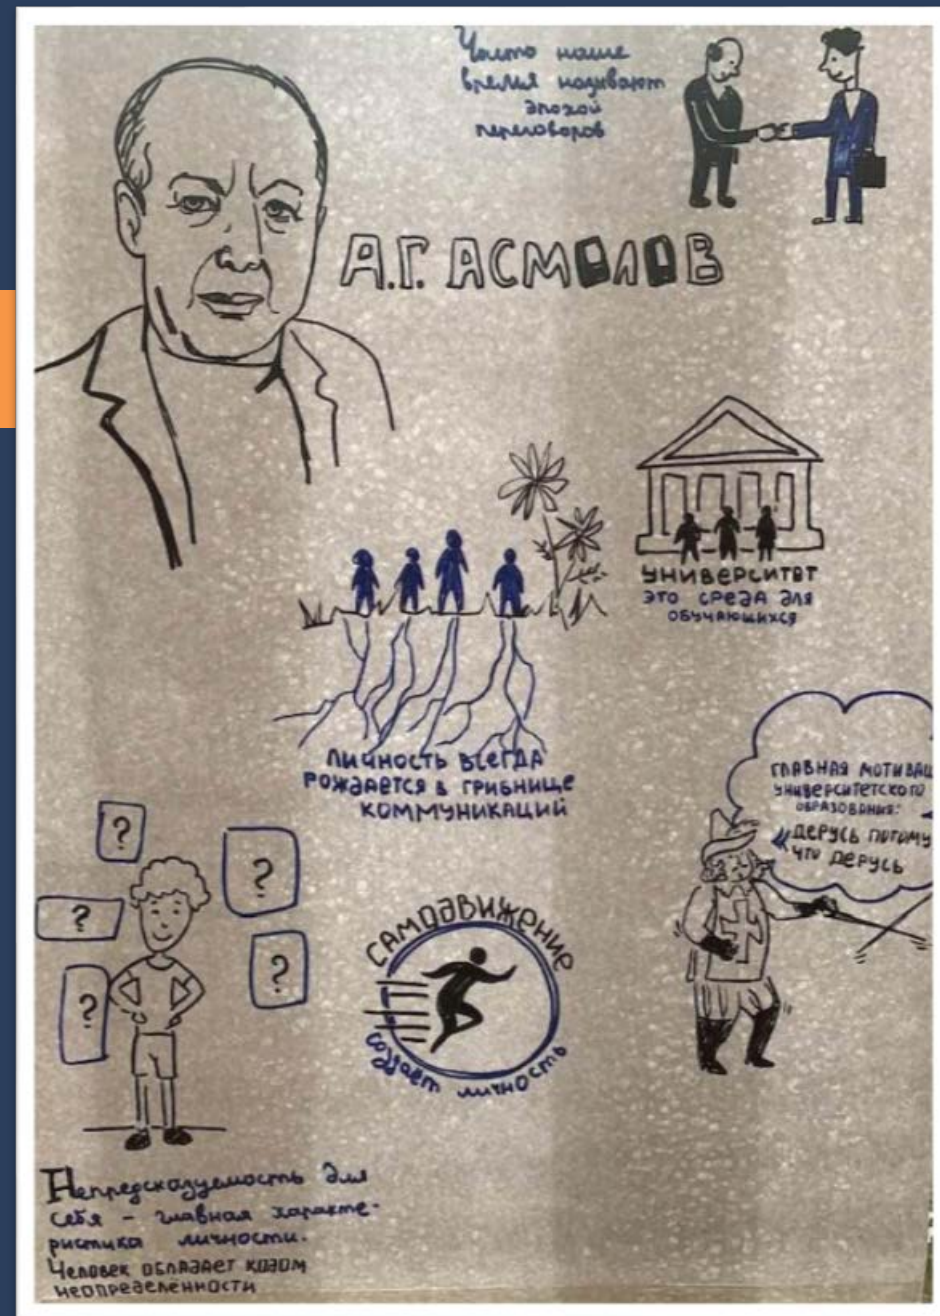 Часто наше
время называют
эпохой
переговоров
А.Г. АСМОЛОВ
УНИВЕРСИТЕТ
ЭТО СРЕДА ДЛЯ
ОБУЧАЮЩИХСЯ
ЛИЧНОСТЬ ВСЕГДА
РОЖДАЕТСЯ В ГРИБНИЦЕ
КОММУНИКАЦИЙ
ГЛАВНАЯ МОТИВАЦ
УНИВЕРСИТЕТСКОГО
ОБРАЗОВАНИЯ:
"ДЕРУСЬ ПОТОМУ
ЧТО ДЕРУСЬ
?
?
?
?
?
САМОДВИЖЕНИЕ
создаёт личность
Непредсказуемость для
себя – главная характе-
ристика личности.
ЧЕЛОВЕК ОБЛАДАЕТ КОДОМ
НЕОПРЕДЕЛЁННОСТИ